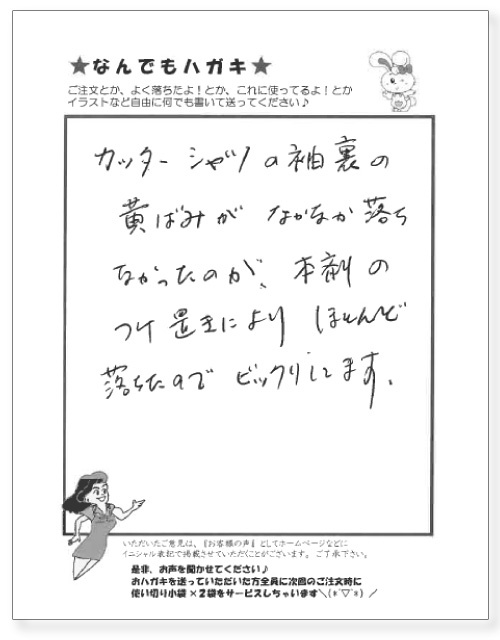 ★なんでもハガキ★
ご注文とか、よく落ちたよ！とか、これに使ってるよ！とか
イラストなど自由に何でも書いて送ってください♪
カッターシャツの袖裏の
黄ばみが なかなか落ち
なかったのが、本剤の
つけ置きにより ほとんど
落ちたので ビックリしてます。
いただいたご意見は、『お客様の声』としてホームページなどに
イニシャル表記で掲載させていただくことがございます。ご了承下さい。
是非、お声を聞かせてください♪
おハガキを送っていただいた方全員に次回のご注文時に
使い切り小袋×2袋をサービスしちゃいます＼(*´▽`*)／